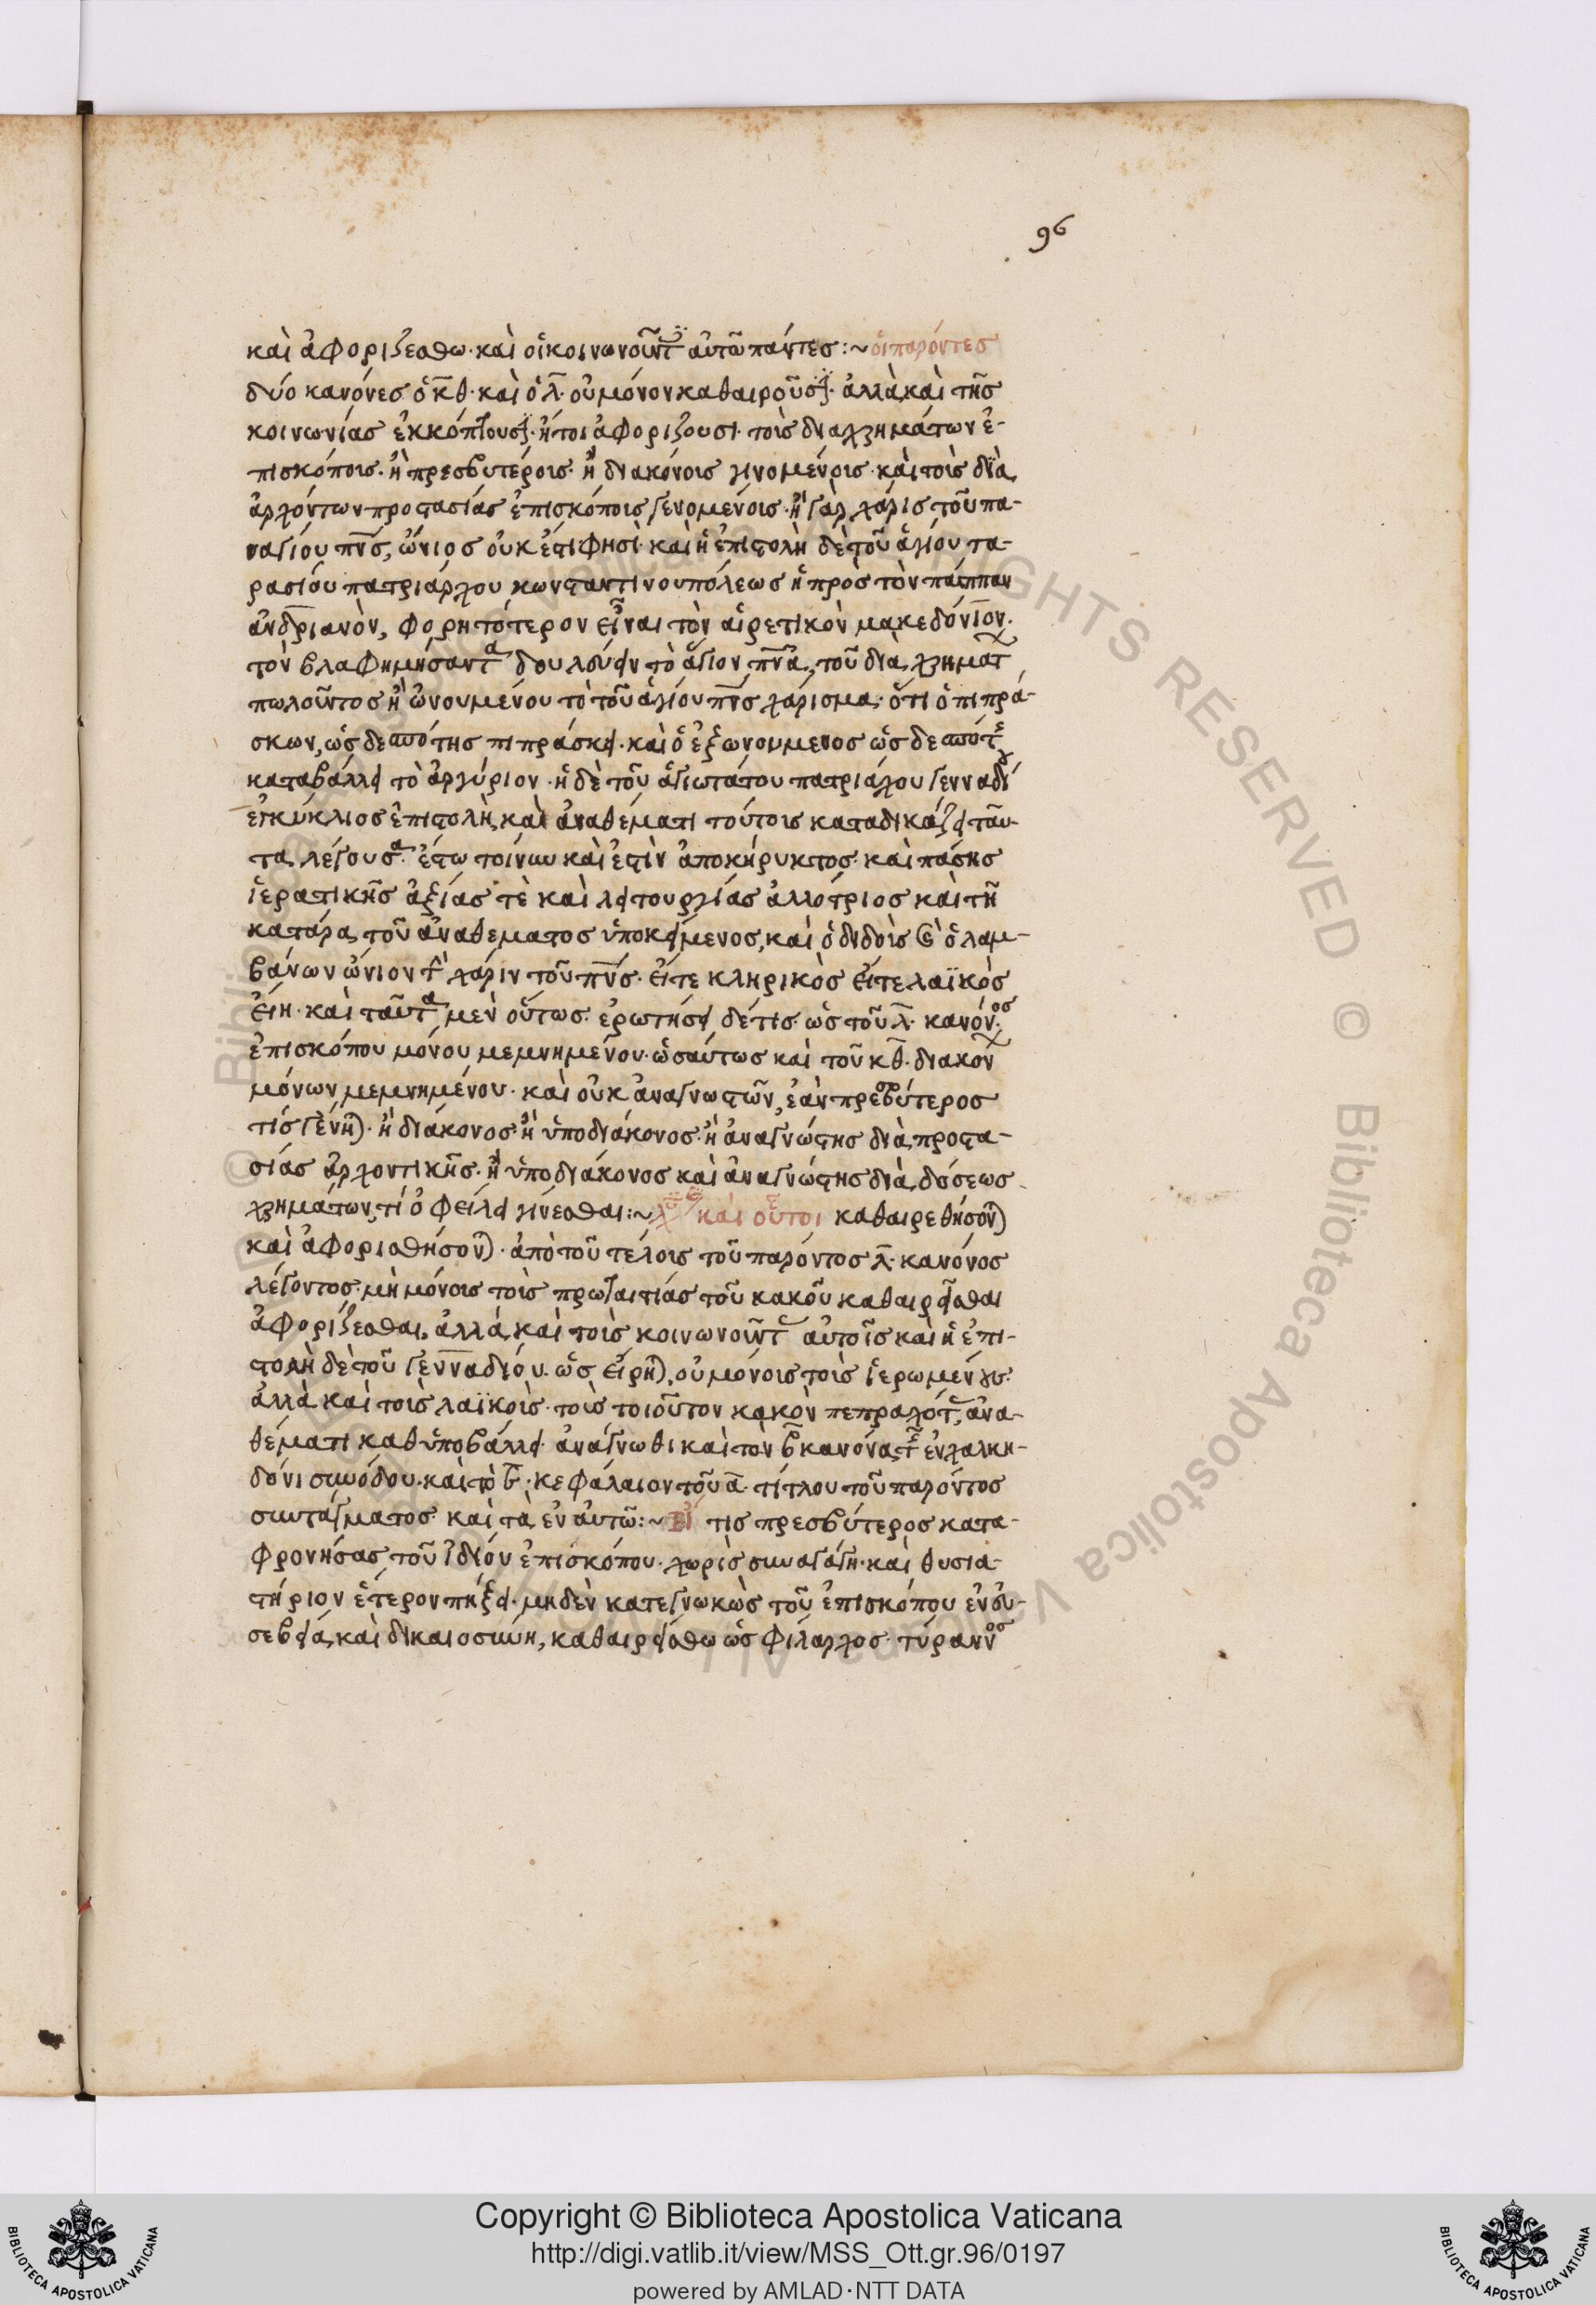 96
καὶ ἀφοριζέσθω· καὶ οἱ κοινωνοῦντ αὐτῶ πάντες :~ οἱ παρόντες
δύο κανόνες ὁ κθ· καὶ ὁ λ· οὐ μόνον καθαιροῦσι· ἀλλὰ καὶ τῆς
κοινωνίας ἐκκόπτουσι· ἤτοι ἀφορίζουσι· τοὺς διαχρημάτων ἐ-
πισκόποις· ἢ πρεσβυτέροις· ἢ διακόνοις γινομένοις· καὶ τοὺς διὰ
ἀρχόντων προστασίας ἐπισκόποις γενομένοις· ἡ γὰρ χάρις τοῦ πα-
ναγίου πνς, ὤνιος οὐκ ἔστι φησὶ· καὶ ἡ ἐπιστολὴ δὲ τοῦ ἁγίου τα-
ρασίου πατριάρχου κωνσταντινουπόλεως ἡ πρὸς τὸν πάππαν
ἀνδριανὸν, φορητότερον εἶναι τὸν αἱρετικὸν μακεδόνιον·
τὸν βλαφημήσαντα δουλεύειν τὸ ἅγιον πνα, τοῦ διὰ χρημάτ
πωλοῦντος ἢ ὠνουμένου τὸ τοῦ ἁγίου πνς χάρισμα· ὅτι ὁ πιπρά-
σκων, ὡς δεσπότης πιπράσκει· καὶ ὁ ἐξωνουμενος ὡς δεσπότ
καταβάλλει τὸ ἀργύριον· ἡ δὲ τοῦ ἁγιωτάτου πατριάχου γενναδί
ἐγκύκλιος ἐπιστολὴ, καὶ ἀναθέματι τούτοις καταδικάζει ταῦ
τα λέγουσα· ἔστω τοίνυν καὶ ἐστὶν ἀποκήρυκτος· καὶ πάσης
ἱερατικῆς ἀξίας τὲ καὶ λειτουργίας ἀλλότριος καὶ τῆ
κατάρα τοῦ ἀναθεματος ὑποκείμενος, καὶ ὁ διδοὺς κ ὁ λαμ-
βάνων ὤνιον τ χάριν τοῦ πνς· εἴτε κληρικὸς εἴτε λαϊκὸς
εἴη· καὶ ταῦτα μὲν οὕτως· ἐρωτήσει δέ τις· ὡς τοῦ λ· κανόνος
ἐπισκόπου μόνου μεμνημένου· ὡσαύτως καὶ τοῦ κθ· διακον
μόνων μεμνημένου· καὶ οὐκ ἀναγνωστῶν, ἐὰν πρεσβύτερος
τίς γένη)· ἢ διάκονος· ἢ ὑποδιάκονος· ἢ ἀναγνώστης διὰ προστα-
σίας ἀρχοντικῆς· ἢ ὑποδιάκονος καὶ ἀναγνώστης διὰ δόσεως
χρημάτων, τί ὀφείλει γίνεσθαι :~ καὶ οὗτοι καθαιρεθήσον)
καὶ ἀφορισθήσον)· ἀπὸ τοῦ τέλους τοῦ παρόντος λ· κανόνος
λέγοντος· μὴ μόνους τοὺς πρωταιτίας τοῦ κακοῦ καθαιρεῖσθαι
ἀφορίζεσθαι, ἀλλὰ καὶ τοὺς κοινωνοῦντ αὐτοῖς καὶ ἡ ἐπι-
στολὴ δὲ τοῦ γενναδίου· ὡς εἴρη), οὐ μόνοις τοὺς ἱερωμένους·
ἀλλὰ καὶ τοὺς λαϊκοὺς· τοὺς τοιοῦτον κακὸν πεπραχότ, ἀνα-
θέματι καθυποβάλλει· ἀνάγνωθι καὶ τὸν β κανόνα τ ἐν χαλκη-
δόνι συνόδου· καὶ τὸ β· κεφάλαιον τοῦ α· τίτλου τοῦ παρόντος
συντάγματος· καὶ τὰ ἐν αὐτῶ :~ Εἴ τις πρεσβύτερος κατα-
φρονήσας τοῦ ἰδίου ἐπισκόπου· χωρὶς συναγάγη· καὶ θυσια-
στήριον ἕτερον πήξει· μηδὲν κατεγνωκὼς τοῦ ἐπισκόπου ἐν εὐ-
σεβεία καὶ δικαιοσύνη, καθαιρείσθω ὡς φίλαρχος· τύραννος
Copyright © Biblioteca Apostolica Vaticana
http://digi.vatlib.it/view/MSS_Ott.gr.96/0197
powered by AMLAD·NTT DATA